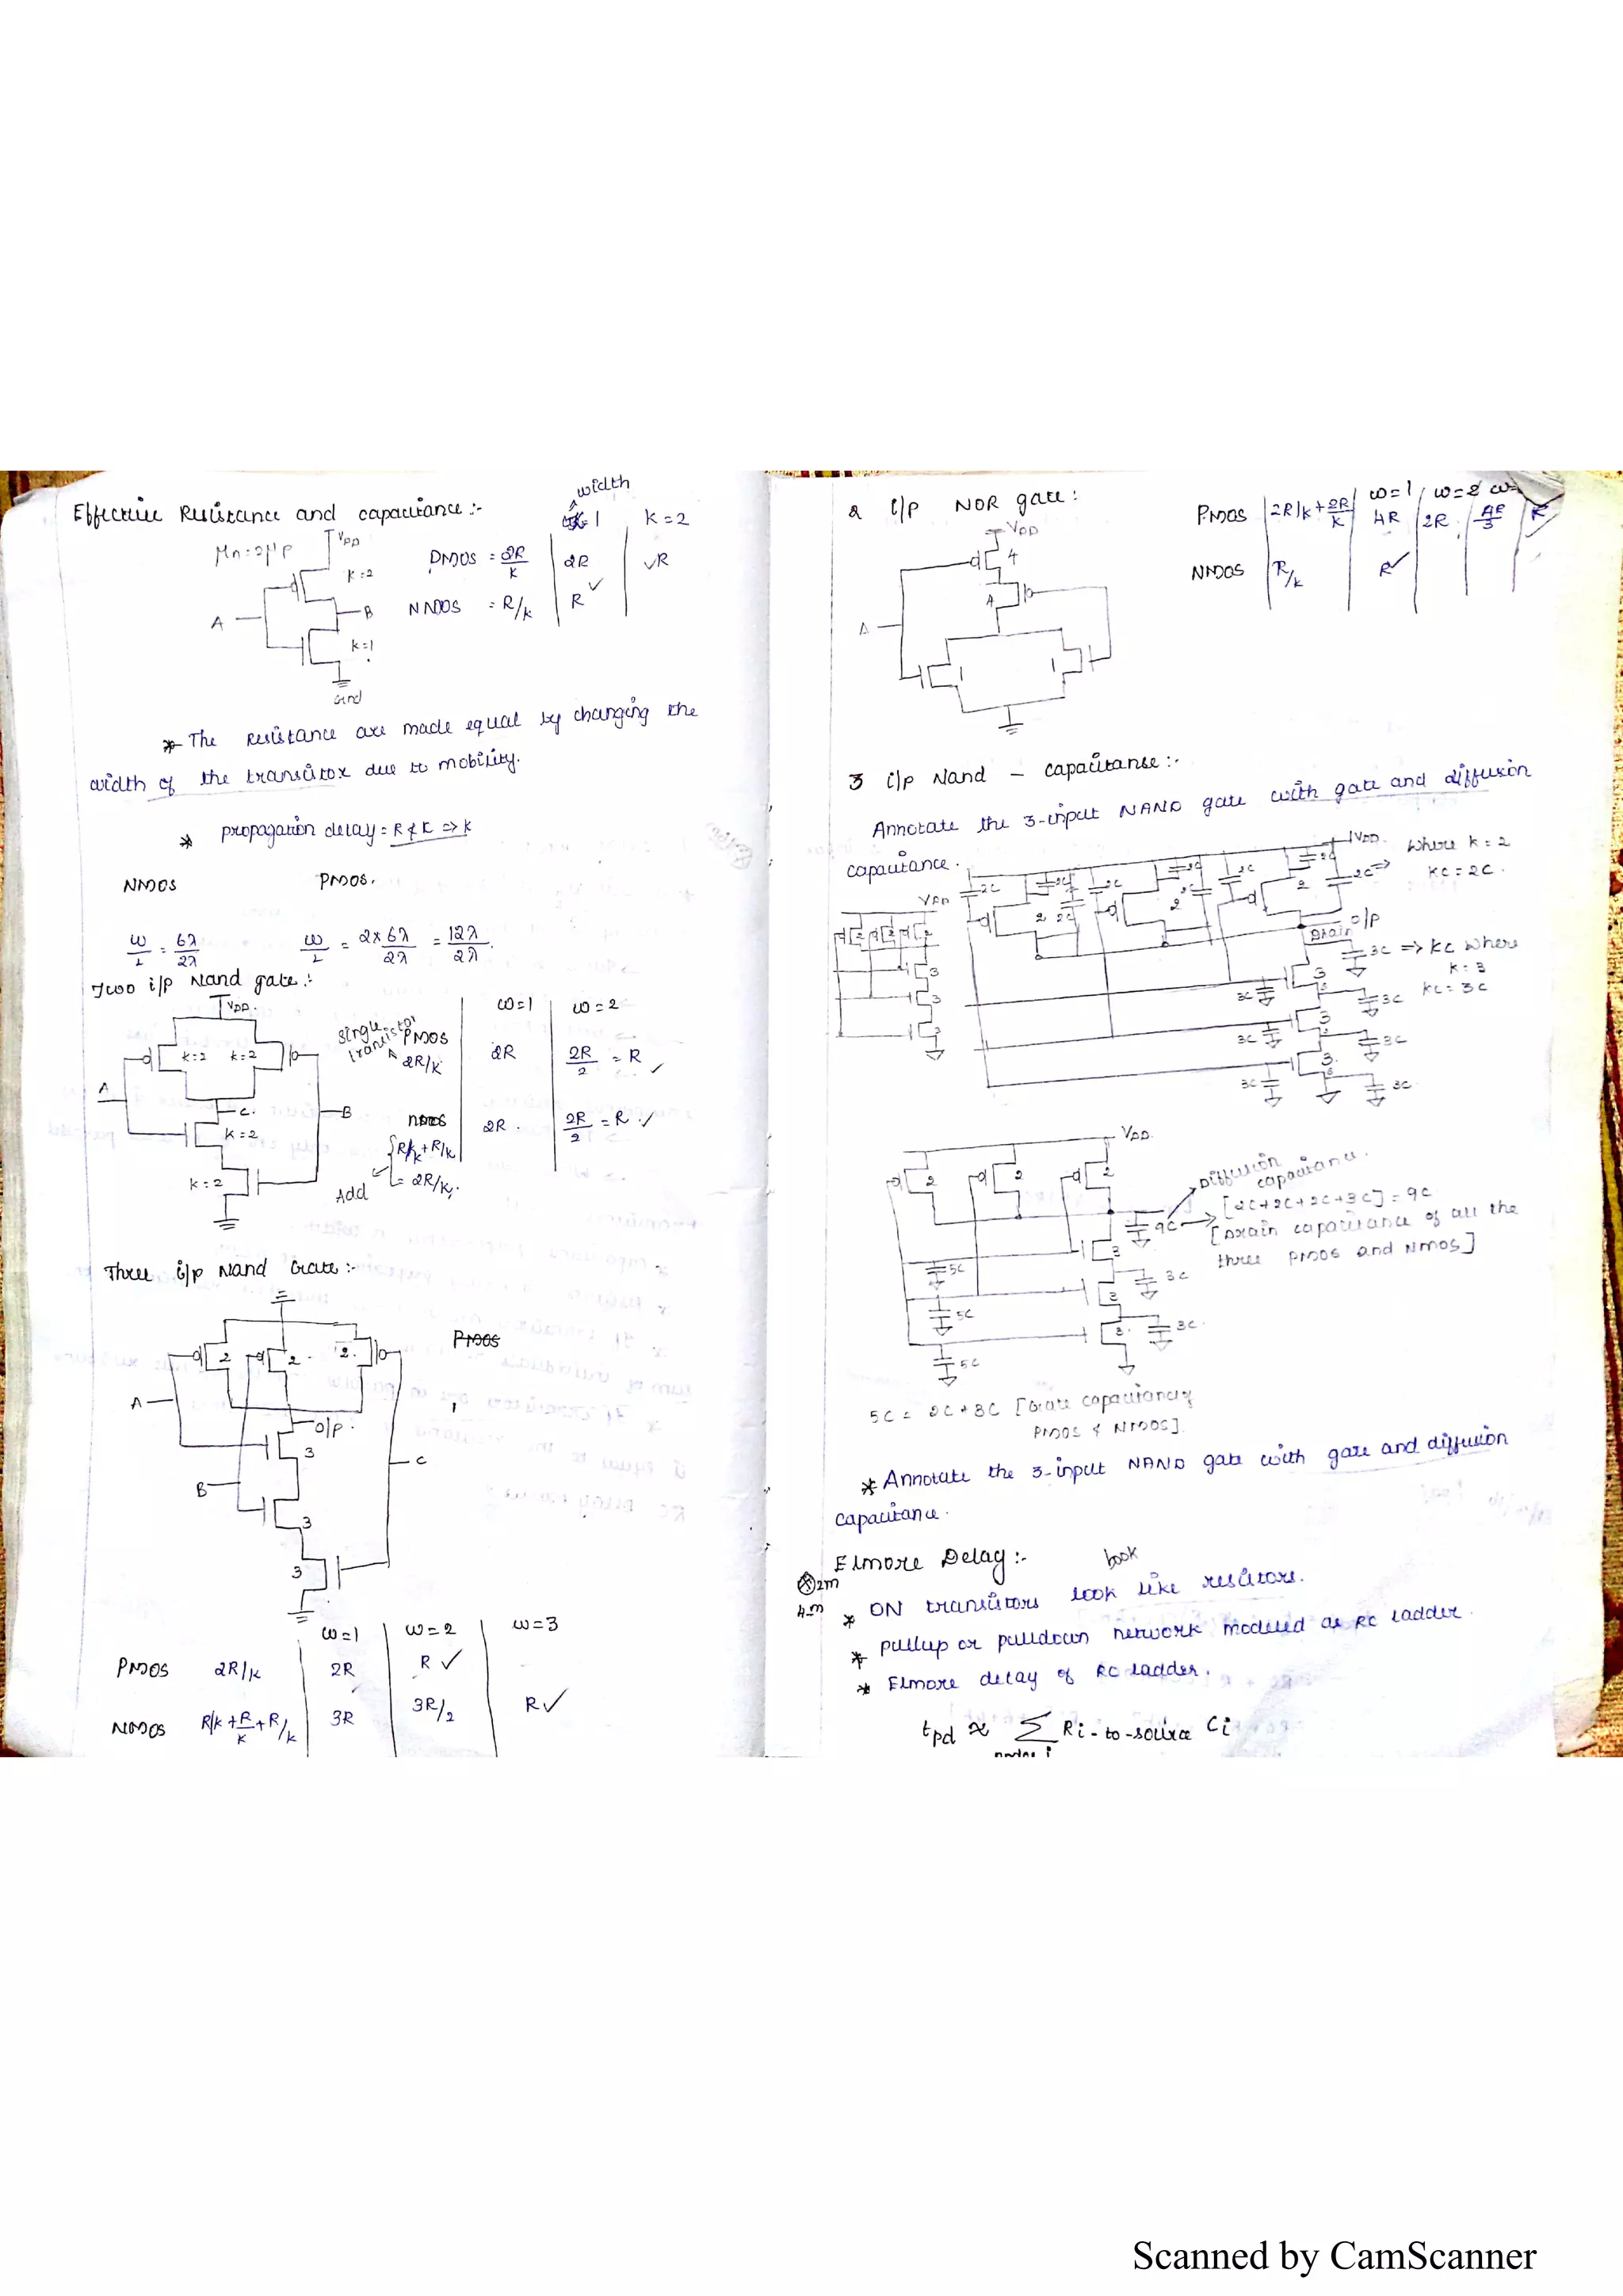 Effective Resistance and capacitance :-
width
1
k = 2
μn = 2μp
VDD
k = 2
PMOS = 2R/k
2R
✓R
A
B
NMOS = R/k
R ✓
k = 1
Gnd
* The Resistance are made equal by changing the
width of the transistor due to mobility.
* propagation delay = R & C => k
NMOS
PMOS.
W/L = 6λ/2λ
W/L = 2x6λ/2λ = 12λ/2λ.
Two i/p Nand gate :-
VDD.
single transistor
PMOS
W=1
W=2
k=2
k=2
2R/k
2R
2R/2 = R ✓
A
C.
B
NMOS
2R.
2R/2 = R ✓
k=2
R/k + R/k
k=2
Add
= 2R/k.
Three i/p Nand Gate :-
PMOS
2
2.
2.
A
o/p.
3
C
B
3
3
W=1
W=2
W=3
PMOS
2R/k
2R
R ✓
NMOS
R/k + R/k + R/k
3R
3R/2
R ✓
2 i/p NOR gate :
VDD
PMOS
2R/k + 2R/k
W=1
4R
W=2
2R
4R/3
R
4
4
NMOS
R/k
R ✓
A
1
1
3 i/p Nand - capacitance :-
Annotate the 3-input NAND gate with gate and diffusion
capacitance.
VDD.
where k = 2
kC = 2C.
VDD
2C
2C
2C
2C
2C
2C
2C
2C
2C
2
2
2
2
2
2
o/p
Drain
3C => kC where
k = 3
kC = 3C
3
3
3
3C
3
3C
3C
3
3C
3C
3
3C
VDD.
2
2
2
Diffusion capacitance.
[2C+2C+2C+3C] = 9C
9C
[Drain capacitance of all the
three PMOS and NMOS]
5C
3
3C
5C
3
3C.
5C
3.
5C = 2C + 3C [Gate capacitance of
PMOS & NMOS].
* Annotate the 3-input NAND gate with gate and diffusion
capacitance.
Elmore Delay :-
book
2m
4m
* ON transistors look like resistors.
* pullup or pulldown network modeled as RC ladder.
* Elmore delay of RC ladder.
tpd ≈ Σ Ri-to-source Ci
nodes i
Scanned by CamScanner